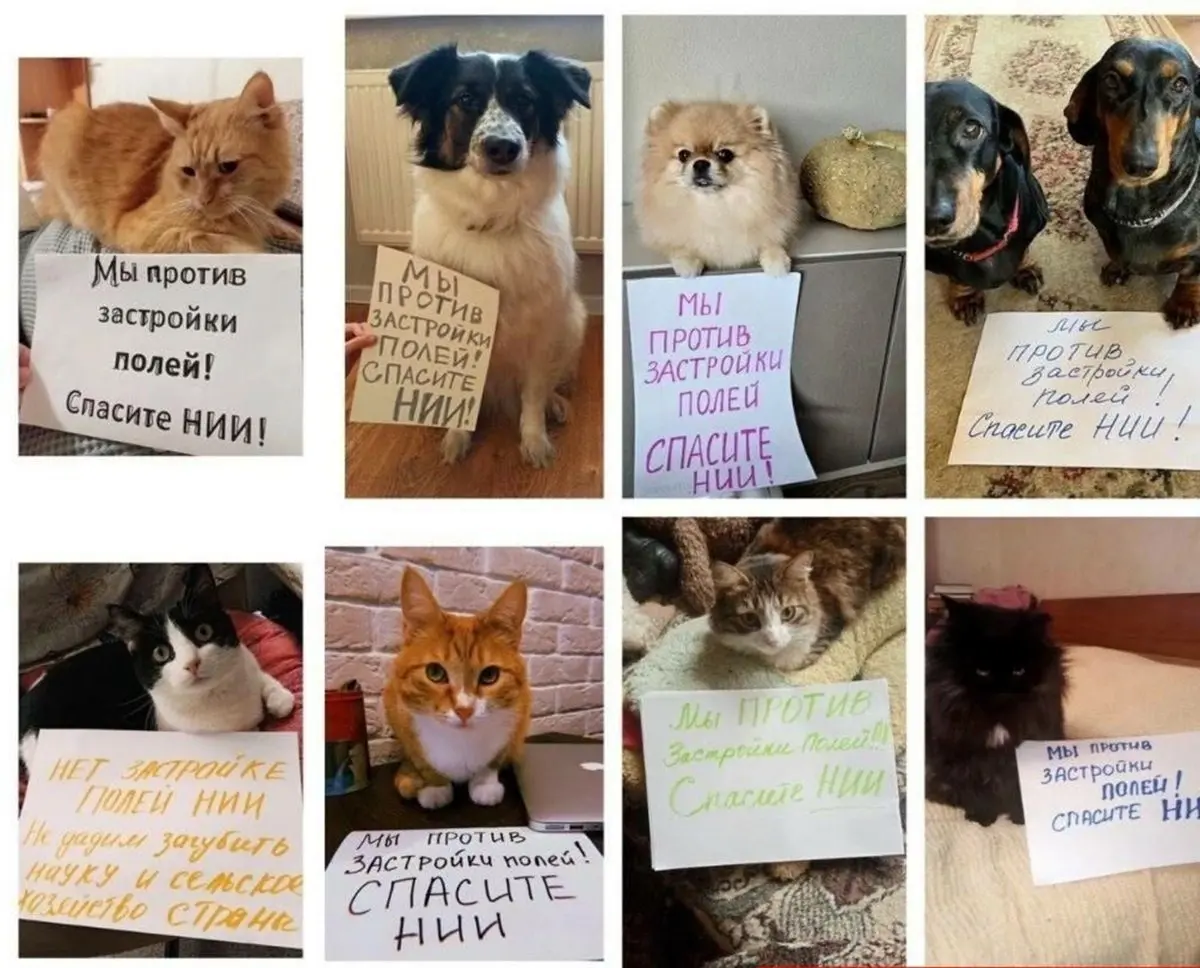 Мы против
застройки
полей!
Спасите НИИ!
МЫ
ПРОТИВ
ЗАСТРОЙКИ
ПОЛЕЙ!
СПАСИТЕ
НИИ!
МЫ
ПРОТИВ
ЗАСТРОЙКИ
ПОЛЕЙ
СПАСИТЕ
НИИ!
МЫ
ПРОТИВ
застройки
полей!
Спасите НИИ!
НЕТ ЗАСТРОЙКЕ
ПОЛЕЙ НИИ
Не дадим загубить
науку и сельское
хозяйство страны
МЫ ПРОТИВ
ЗАСТРОЙКИ полей!
СПАСИТЕ
НИИ
Мы ПРОТИВ
Застройки Полей!!!
Спасите НИИ
МЫ ПРОТИВ
ЗАСТРОЙКИ
ПОЛЕЙ!
СПАСИТЕ НИ